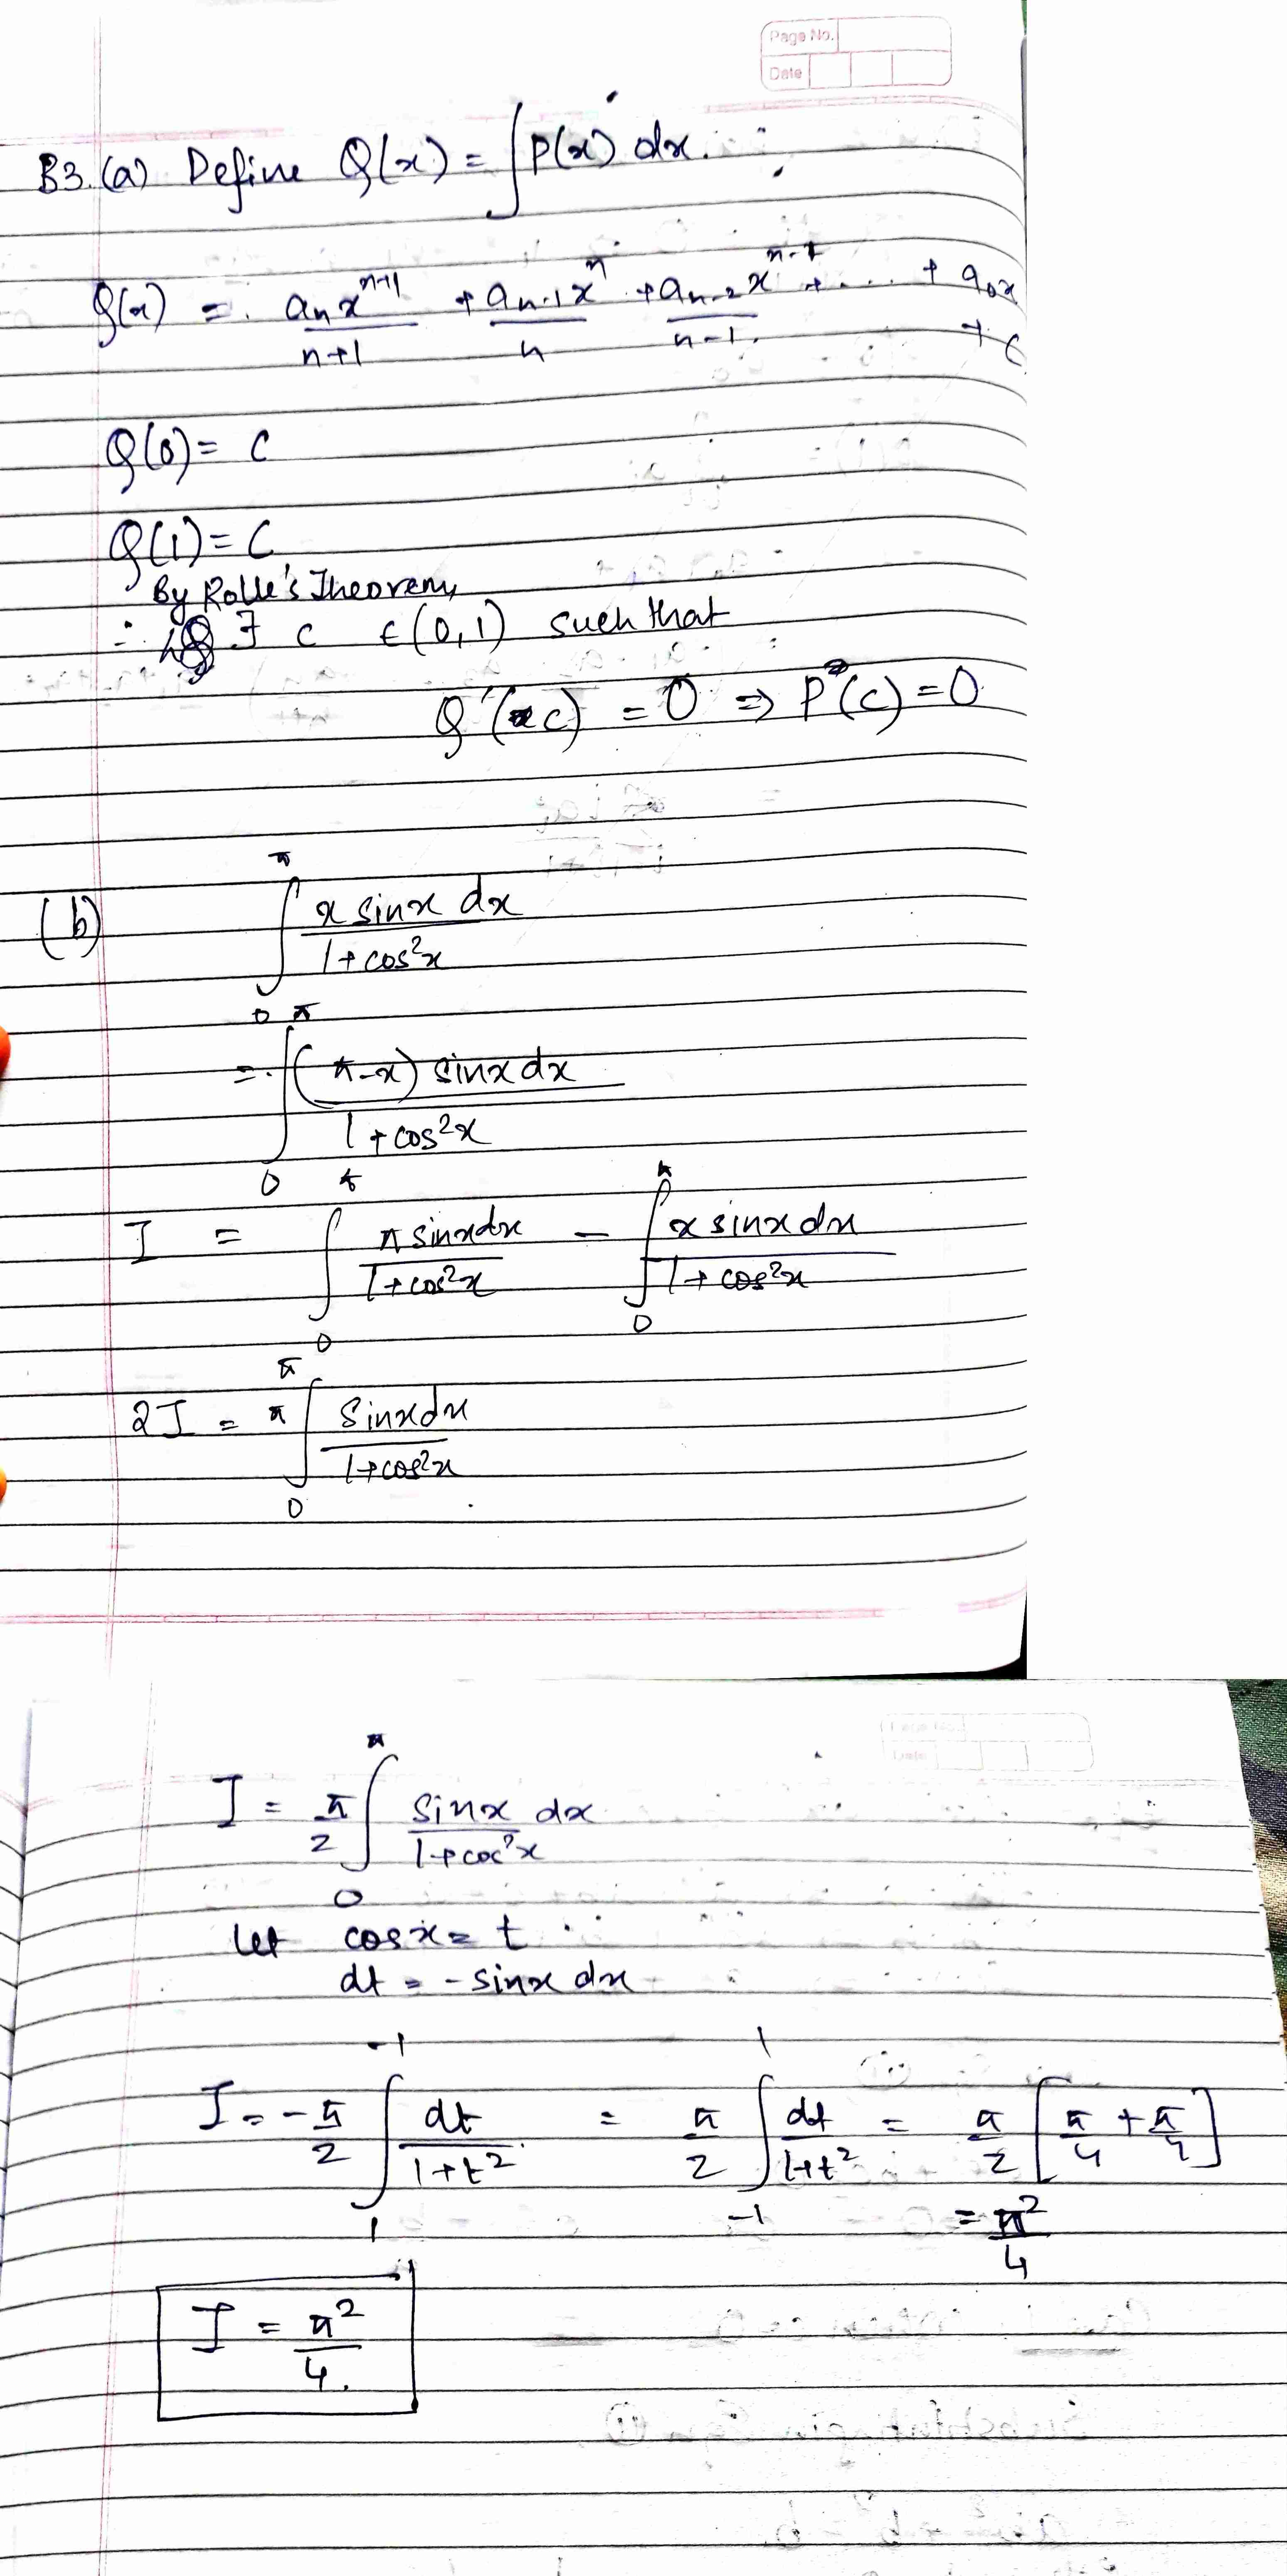 Page No.
Date
B3. (a) Define Q(x) = ∫P(x) dx.
Q(x) = a_n x^{n+1}/(n+1) + a_{n-1} x^n/n + a_{n-2} x^{n-1}/(n-1) + .... + a_0 x + C
Q(0) = C
Q(1) = C
By Rolle's Theorem,
∴ ∃ c ∈ (0,1) such that
Q'(c) = 0 ⇒ P(c) = 0
(b) ∫_0^π x sinx dx/(1+cos²x)
= ∫_0^π (π-x) sinx dx/(1+cos²x)
I = ∫_0^π π sinx dx/(1+cos²x) − ∫_0^π x sinx dx/(1+cos²x)
2I = π ∫_0^π sinx dx/(1+cos²x)
I = π/2 ∫_0^π sinx/(1+cos²x) dx
Let cosx = t
dt = -sinx dx
I = -π/2 ∫_1^{-1} dt/(1+t²) = π/2 ∫_{-1}^1 dt/(1+t²) = π/2 [π/4 + π/4]
= π²/4
I = π²/4.